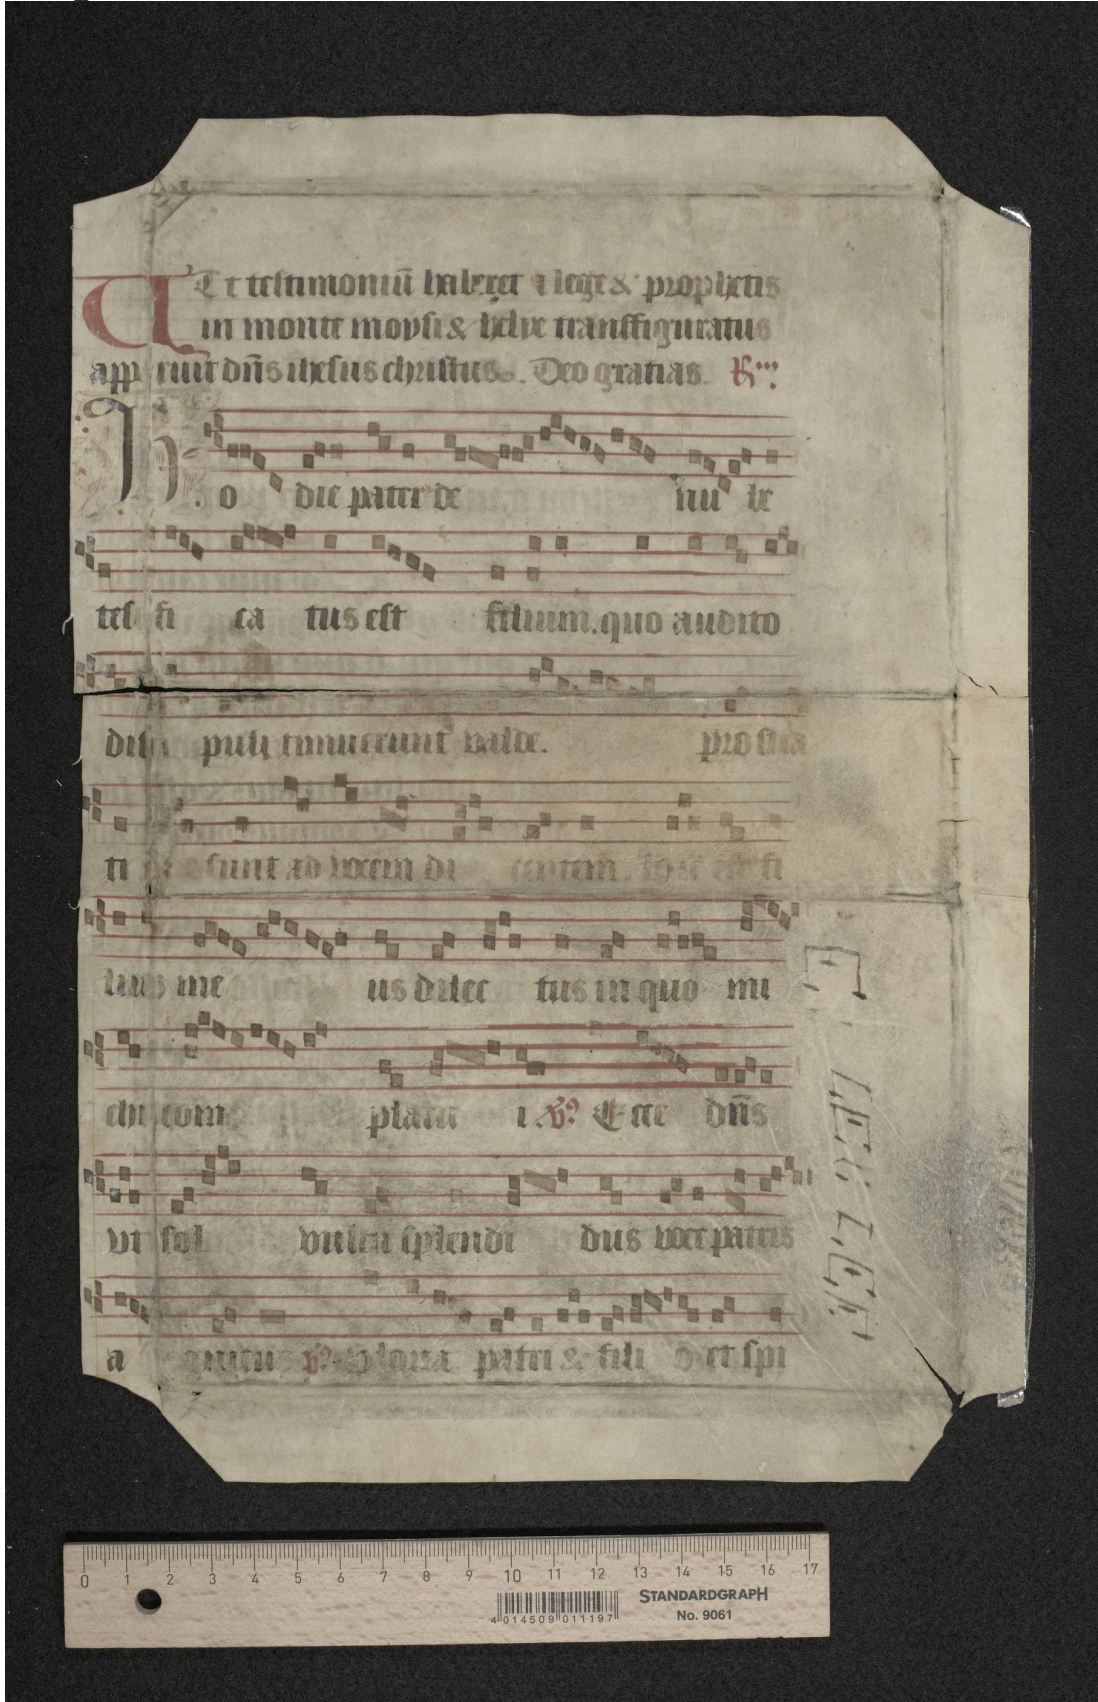 UT testimoniū haberet a lege & prophetis
in monte moysi & helye transfiguratus
apparuit dn̄s ihesus christus. Deo gratias. R
Ho die pater de nu be
tes ti ca tus est filium. quo audito
disci puli timuerunt valde. pro stra
ti de sunt ad vocem di centem hic est fi
lius me us dilec tus in quo mi
chi com placu i ℣. Ecce dn̄s
vt sol splendi dus voce patris
a ℣. Gloria patri & fili o et spi
0 1 2 3 4 5 6 7 8 9 10 11 12 13 14 15 16 17
4 014509 011197
STANDARDGRAPH
No. 9061